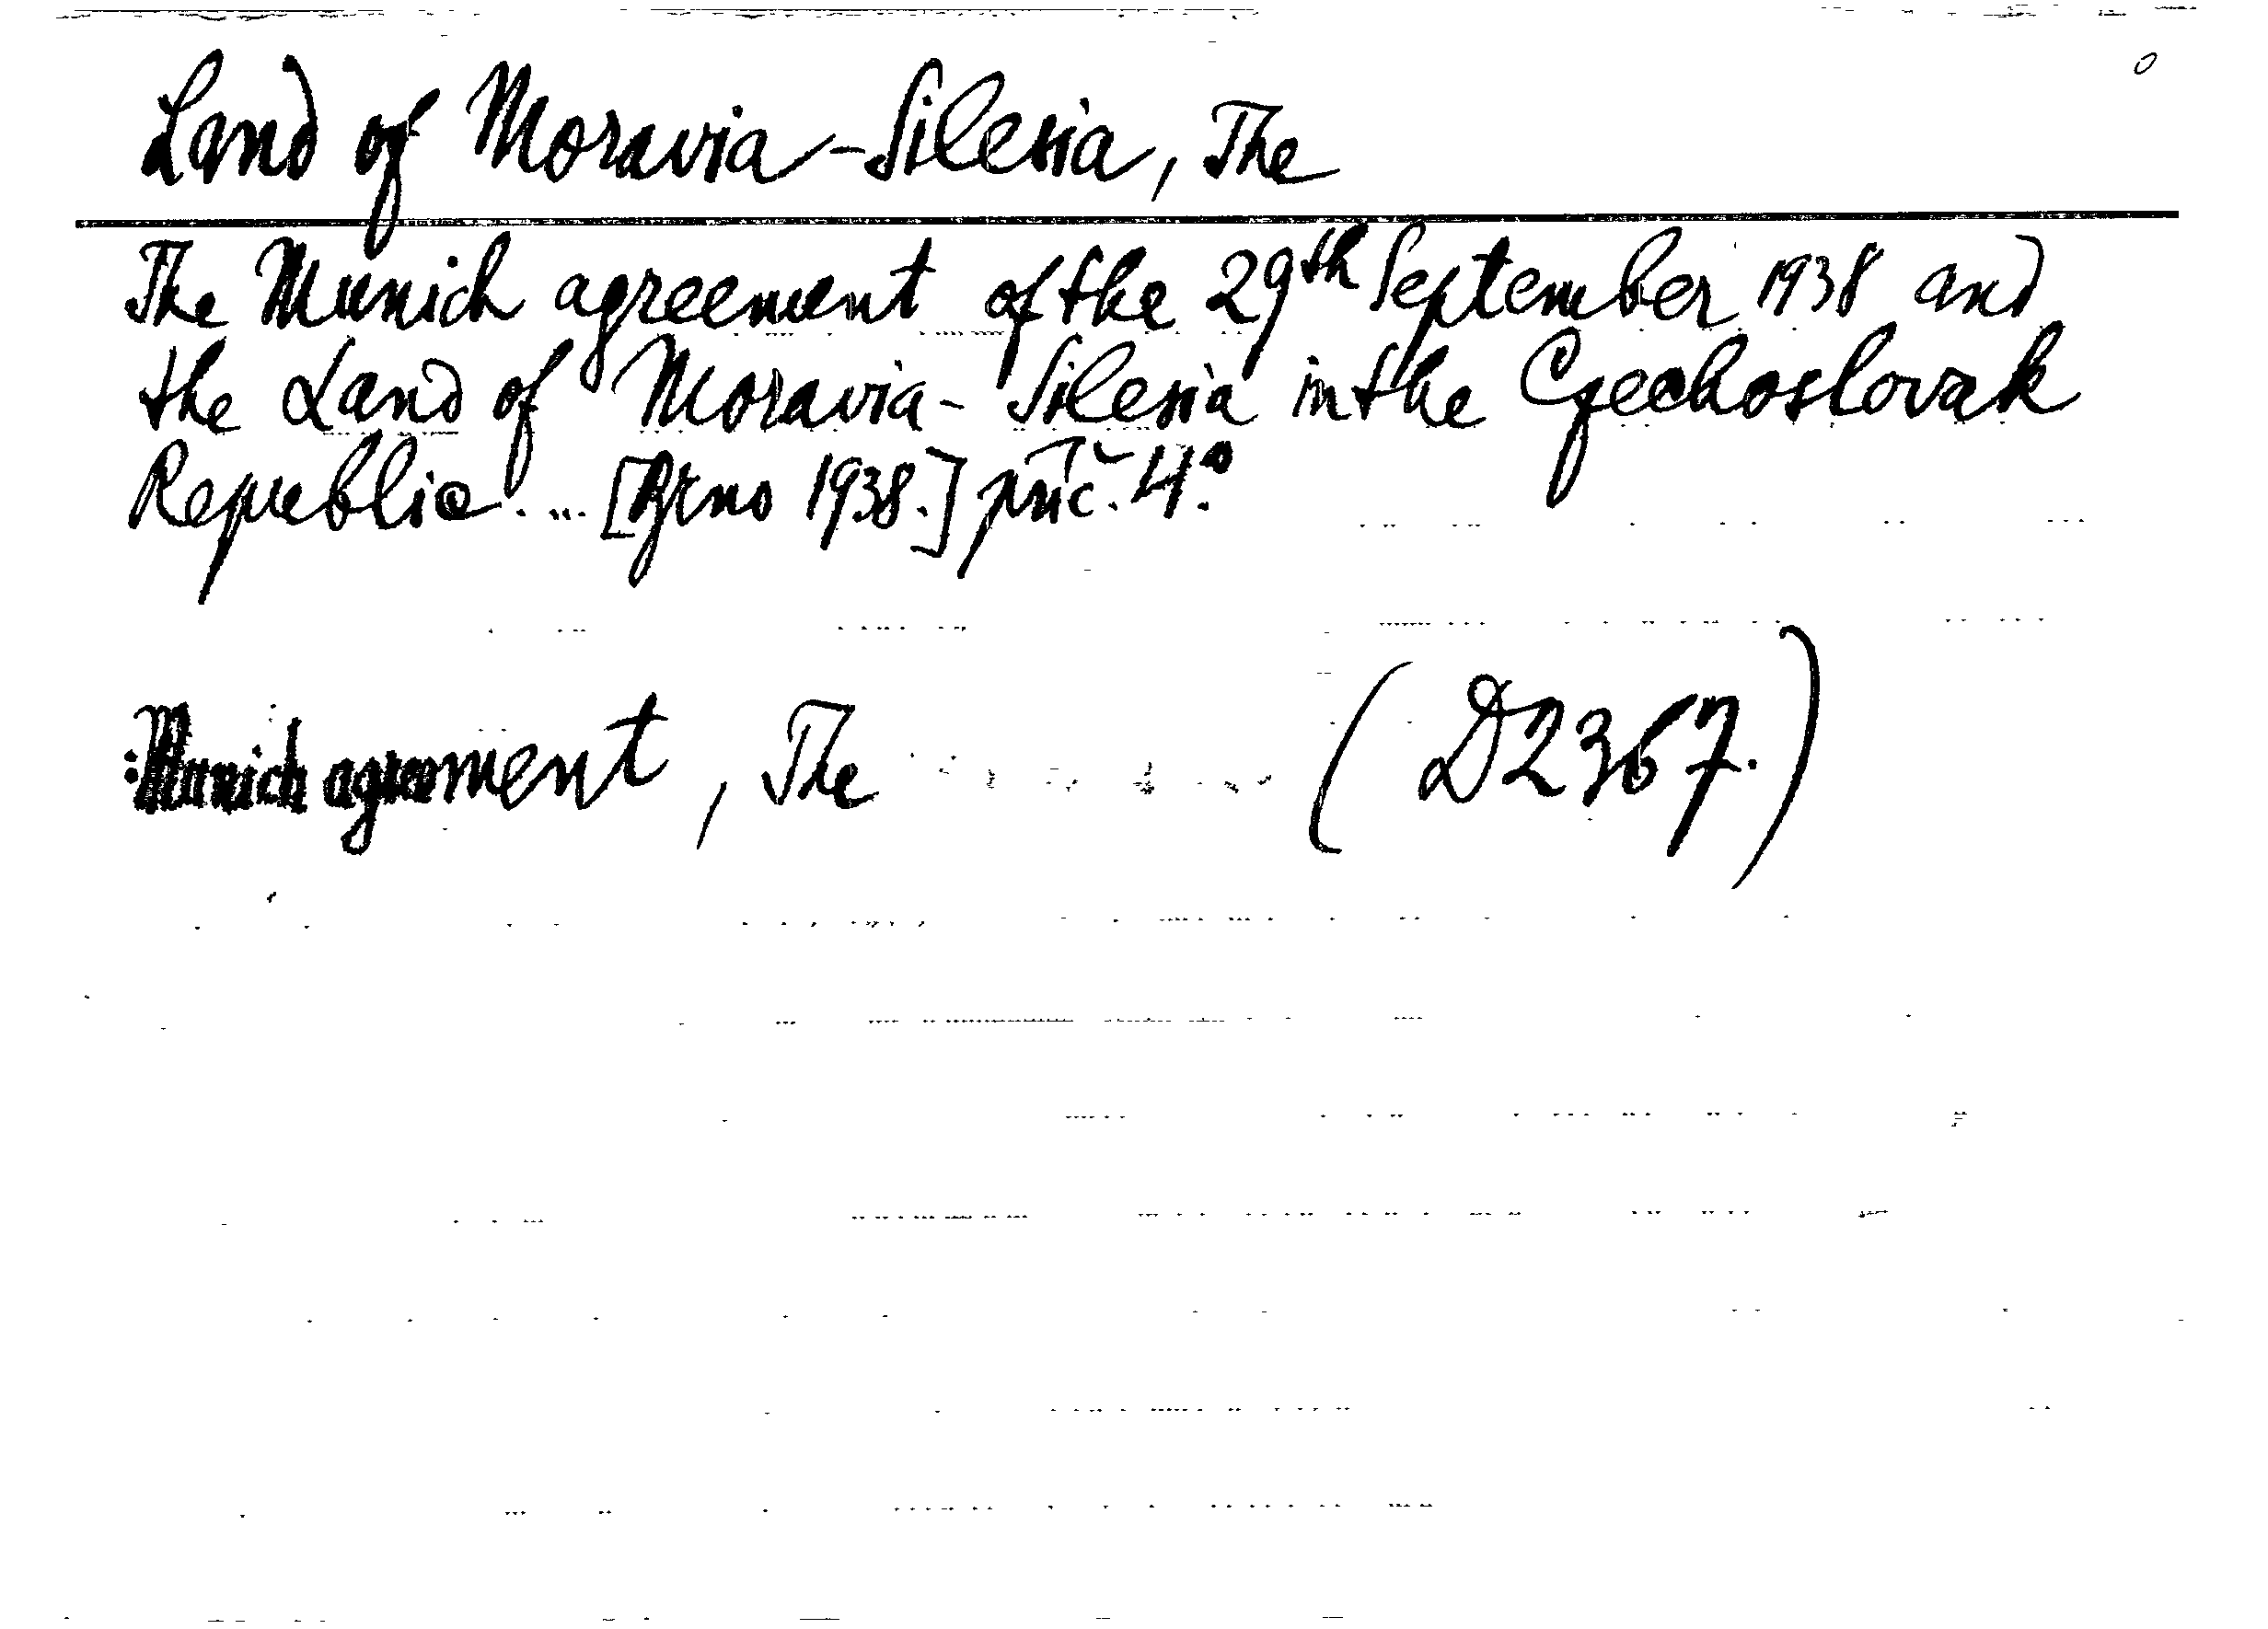 Land of Moravia-Silesia, The
The Munich agreement of the 29th September 1938 and
the Land of Moravia-Silesia in the Czechoslovak
Republic .... [Brno 1938.] příč. 4°.
: Munich agreement, The (D2367.)